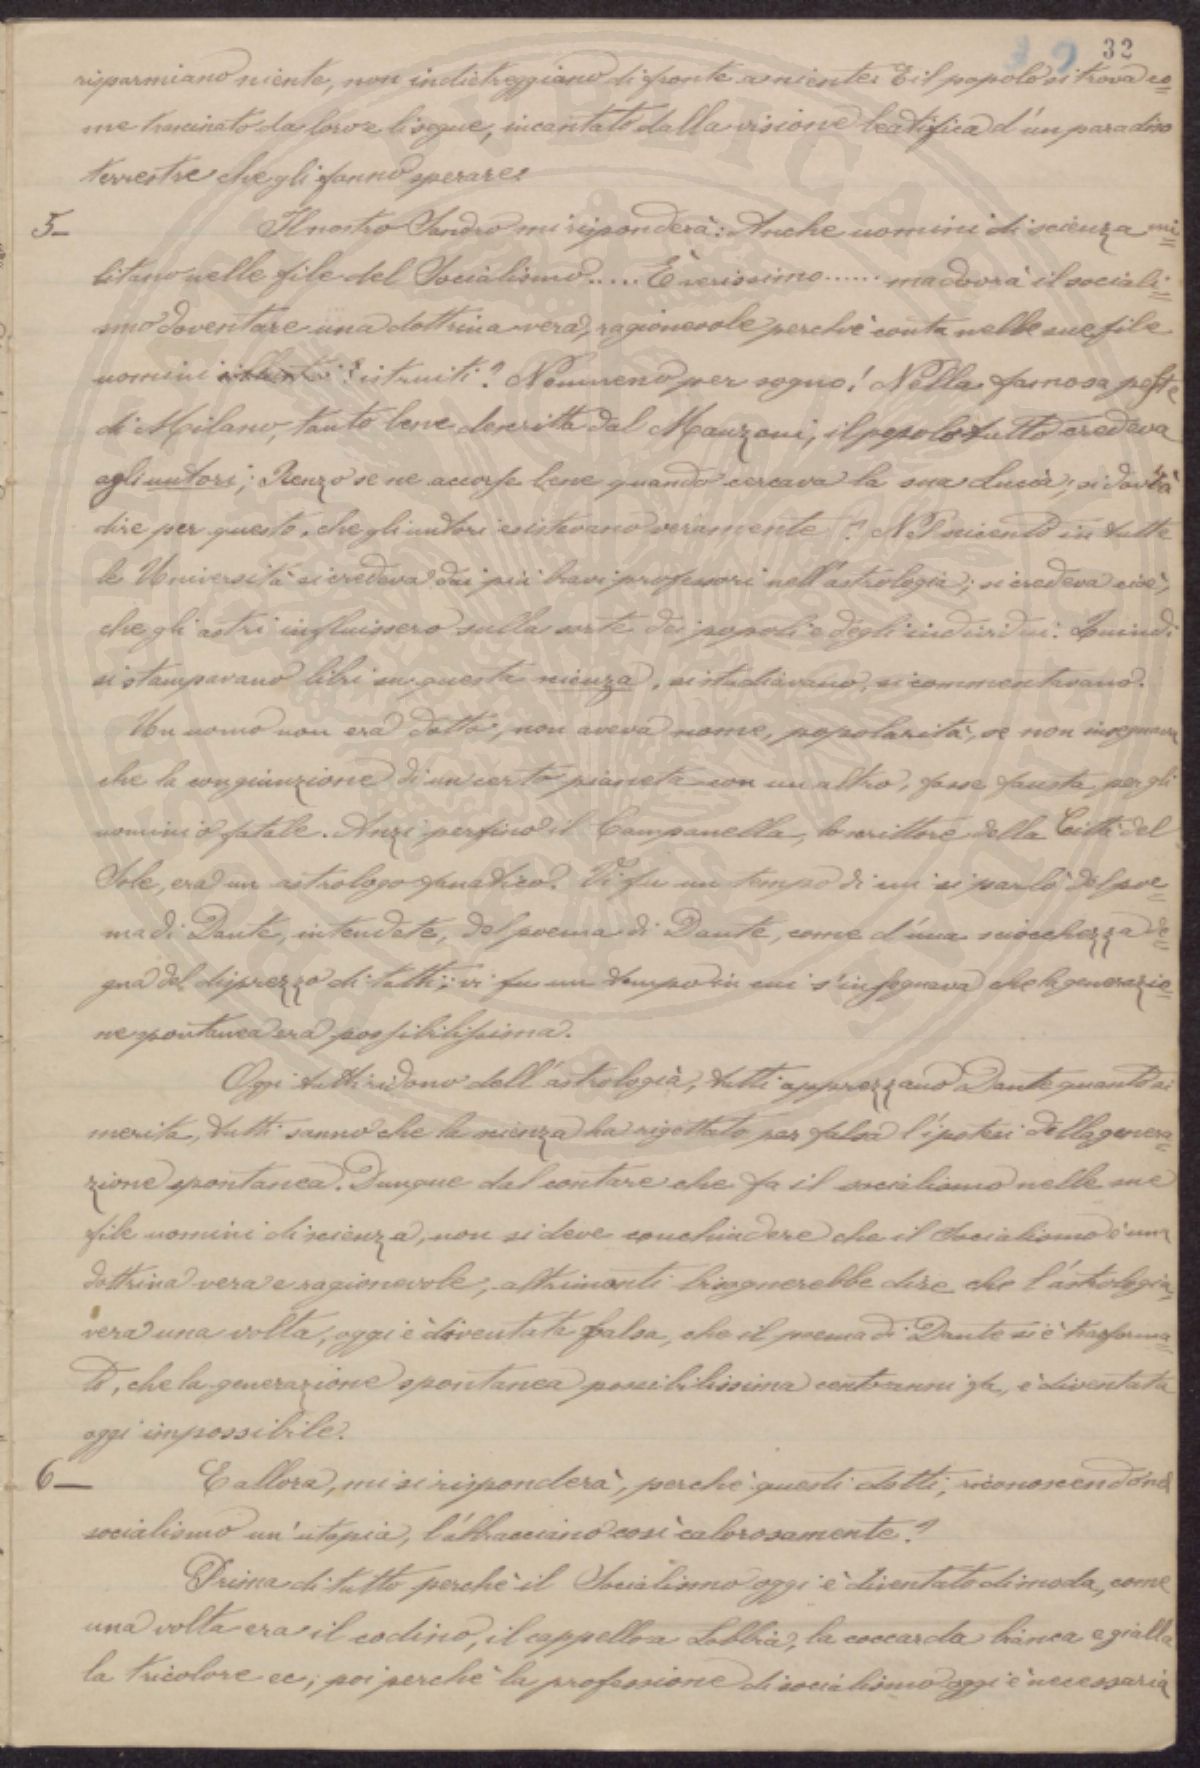 32
risparmiano niente, non indietreggiano di fronte a niente. E il popolo si trova co=
me trascinato da loro e li segue, incantato dalla visione beatifica d'un paradiso
terrestre che gli fanno sperare.
5_ Il nostro Sandro mi risponderà: Anche uomini di scienza mi=
litano nelle file del Socialismo..... È verissimo...... ma dovrà il sociali=
smo doventare una dottrina vera, ragionevole perchè conta nelle sue file
uomini istruiti? Nemmeno per sogno! Nella famosa peste
di Milano, tanto bene descritta dal Manzoni, il popolo tutto credeva
agli untori; Renzo se ne accorse bene quando cercava la sua Lucia; si dovrà
dire per questo, che gli untori esistevano veramente? Nel seicento in tutte
le Università si credeva dai più bravi professori nell'astrologia; si credeva cioè,
che gli astri influissero sulla sorte dei popoli e degli individui. Quindi
si stampavano libri su questa scienza, si studiavano, si commentavano.
Un uomo non era dotto, non aveva nome, popolarità, se non insegnava
che la congiunzione di un certo pianeta con un altro, fosse fausta per gli
uomini o fatale. Anzi perfino il Campanella, lo scrittore della Città del
Sole, era un astrologo fanatico. Vi fu un tempo di cui si parlò del poe=
ma di Dante, intendete, del poema di Dante, come d'una sciocchezza de=
gna del disprezzo di tutti; vi fu un tempo in cui s'insegnava che la generazio=
ne spontanea era possibilissima.
Oggi tutti ridono dell'astrologia, tutti apprezzano Dante quanto si
merita, tutti sanno che la scienza ha rigettato per falsa l'ipotesi della genera=
zione spontanea. Dunque dal contare che fa il socialismo nelle sue
file uomini di scienza, non si deve conchiudere che il Socialismo è una
dottrina vera e ragionevole, altrimenti bisognerebbe dire che l'astrologia,
vera una volta, oggi è diventata falsa, che il poema di Dante si è trasforma=
to, che la generazione spontanea possibilissima cent'anni fa, è diventata
oggi impossibile.
6_ E allora, mi si risponderà, perchè questi dotti, riconoscendo nel
socialismo un'utopia, l'abbracciano così calorosamente?
Prima di tutto perchè il Socialismo oggi è diventato di moda, come
una volta era il codino, il cappello a Lobbia, la coccarda bianca e gialla
la tricolore ec; poi perchè la professione di socialismo oggi è necessaria